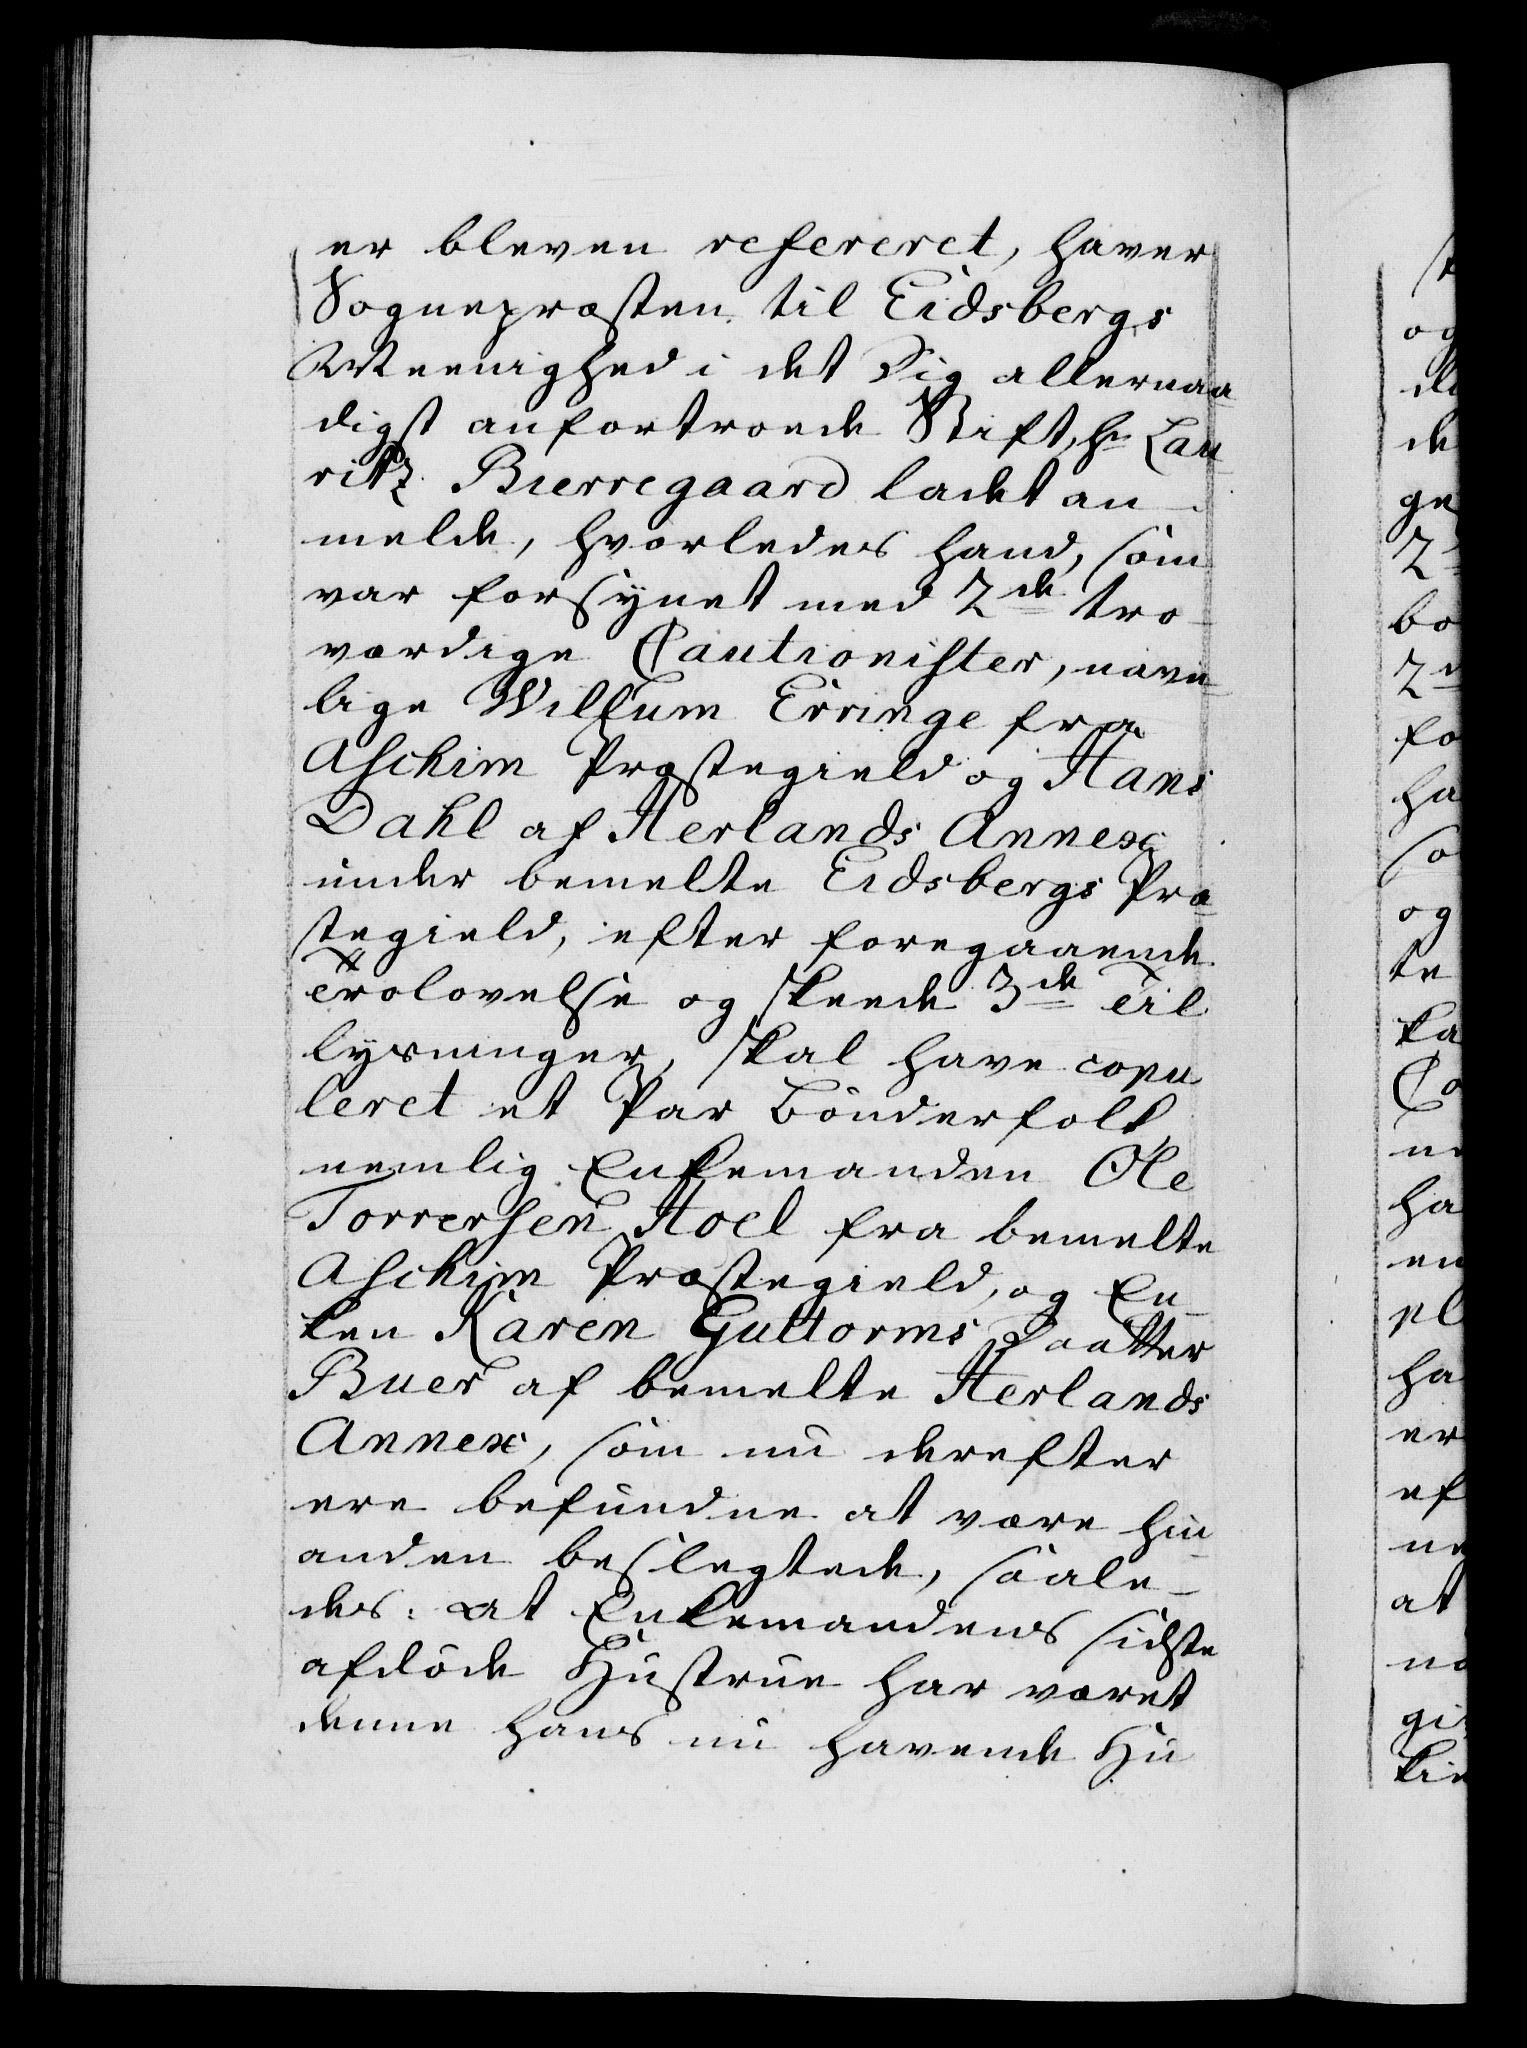 er bleven refereret, haver
Sognepræsten til Eidsbergs
Meenighed i det Dig allernaa-
digst anfortroede Stift, Hr. Lau-
ritz Bierregaard ladet an-
melde, hvorledes hand, som
var forsÿnet med 2de tro-
værdige Cautionister, navn-
lige Willum Erringe fra
Aschim Præstegield og Hans
Dahl af Herlands Annex
under bemelte Eidsbergs Præ-
stegield, efter foregaaende
Trolovelse og skeede 3de Til
lÿsninger, skal have copu
leret et Par Bønderfolk
nemlig Enkemanden Ole
Torrersen Hoel fra bemelte
Aschim Præstegield, og En-
ken Karen Guttorms Daatter
Buer af bemelte Herlands
Annex, som nu derefter
ere befundne at være hin-
anden beslegtede, saale-
des: at Enkemandens sidste
afdøde Hustrue har været
denne hans nu havende Hu